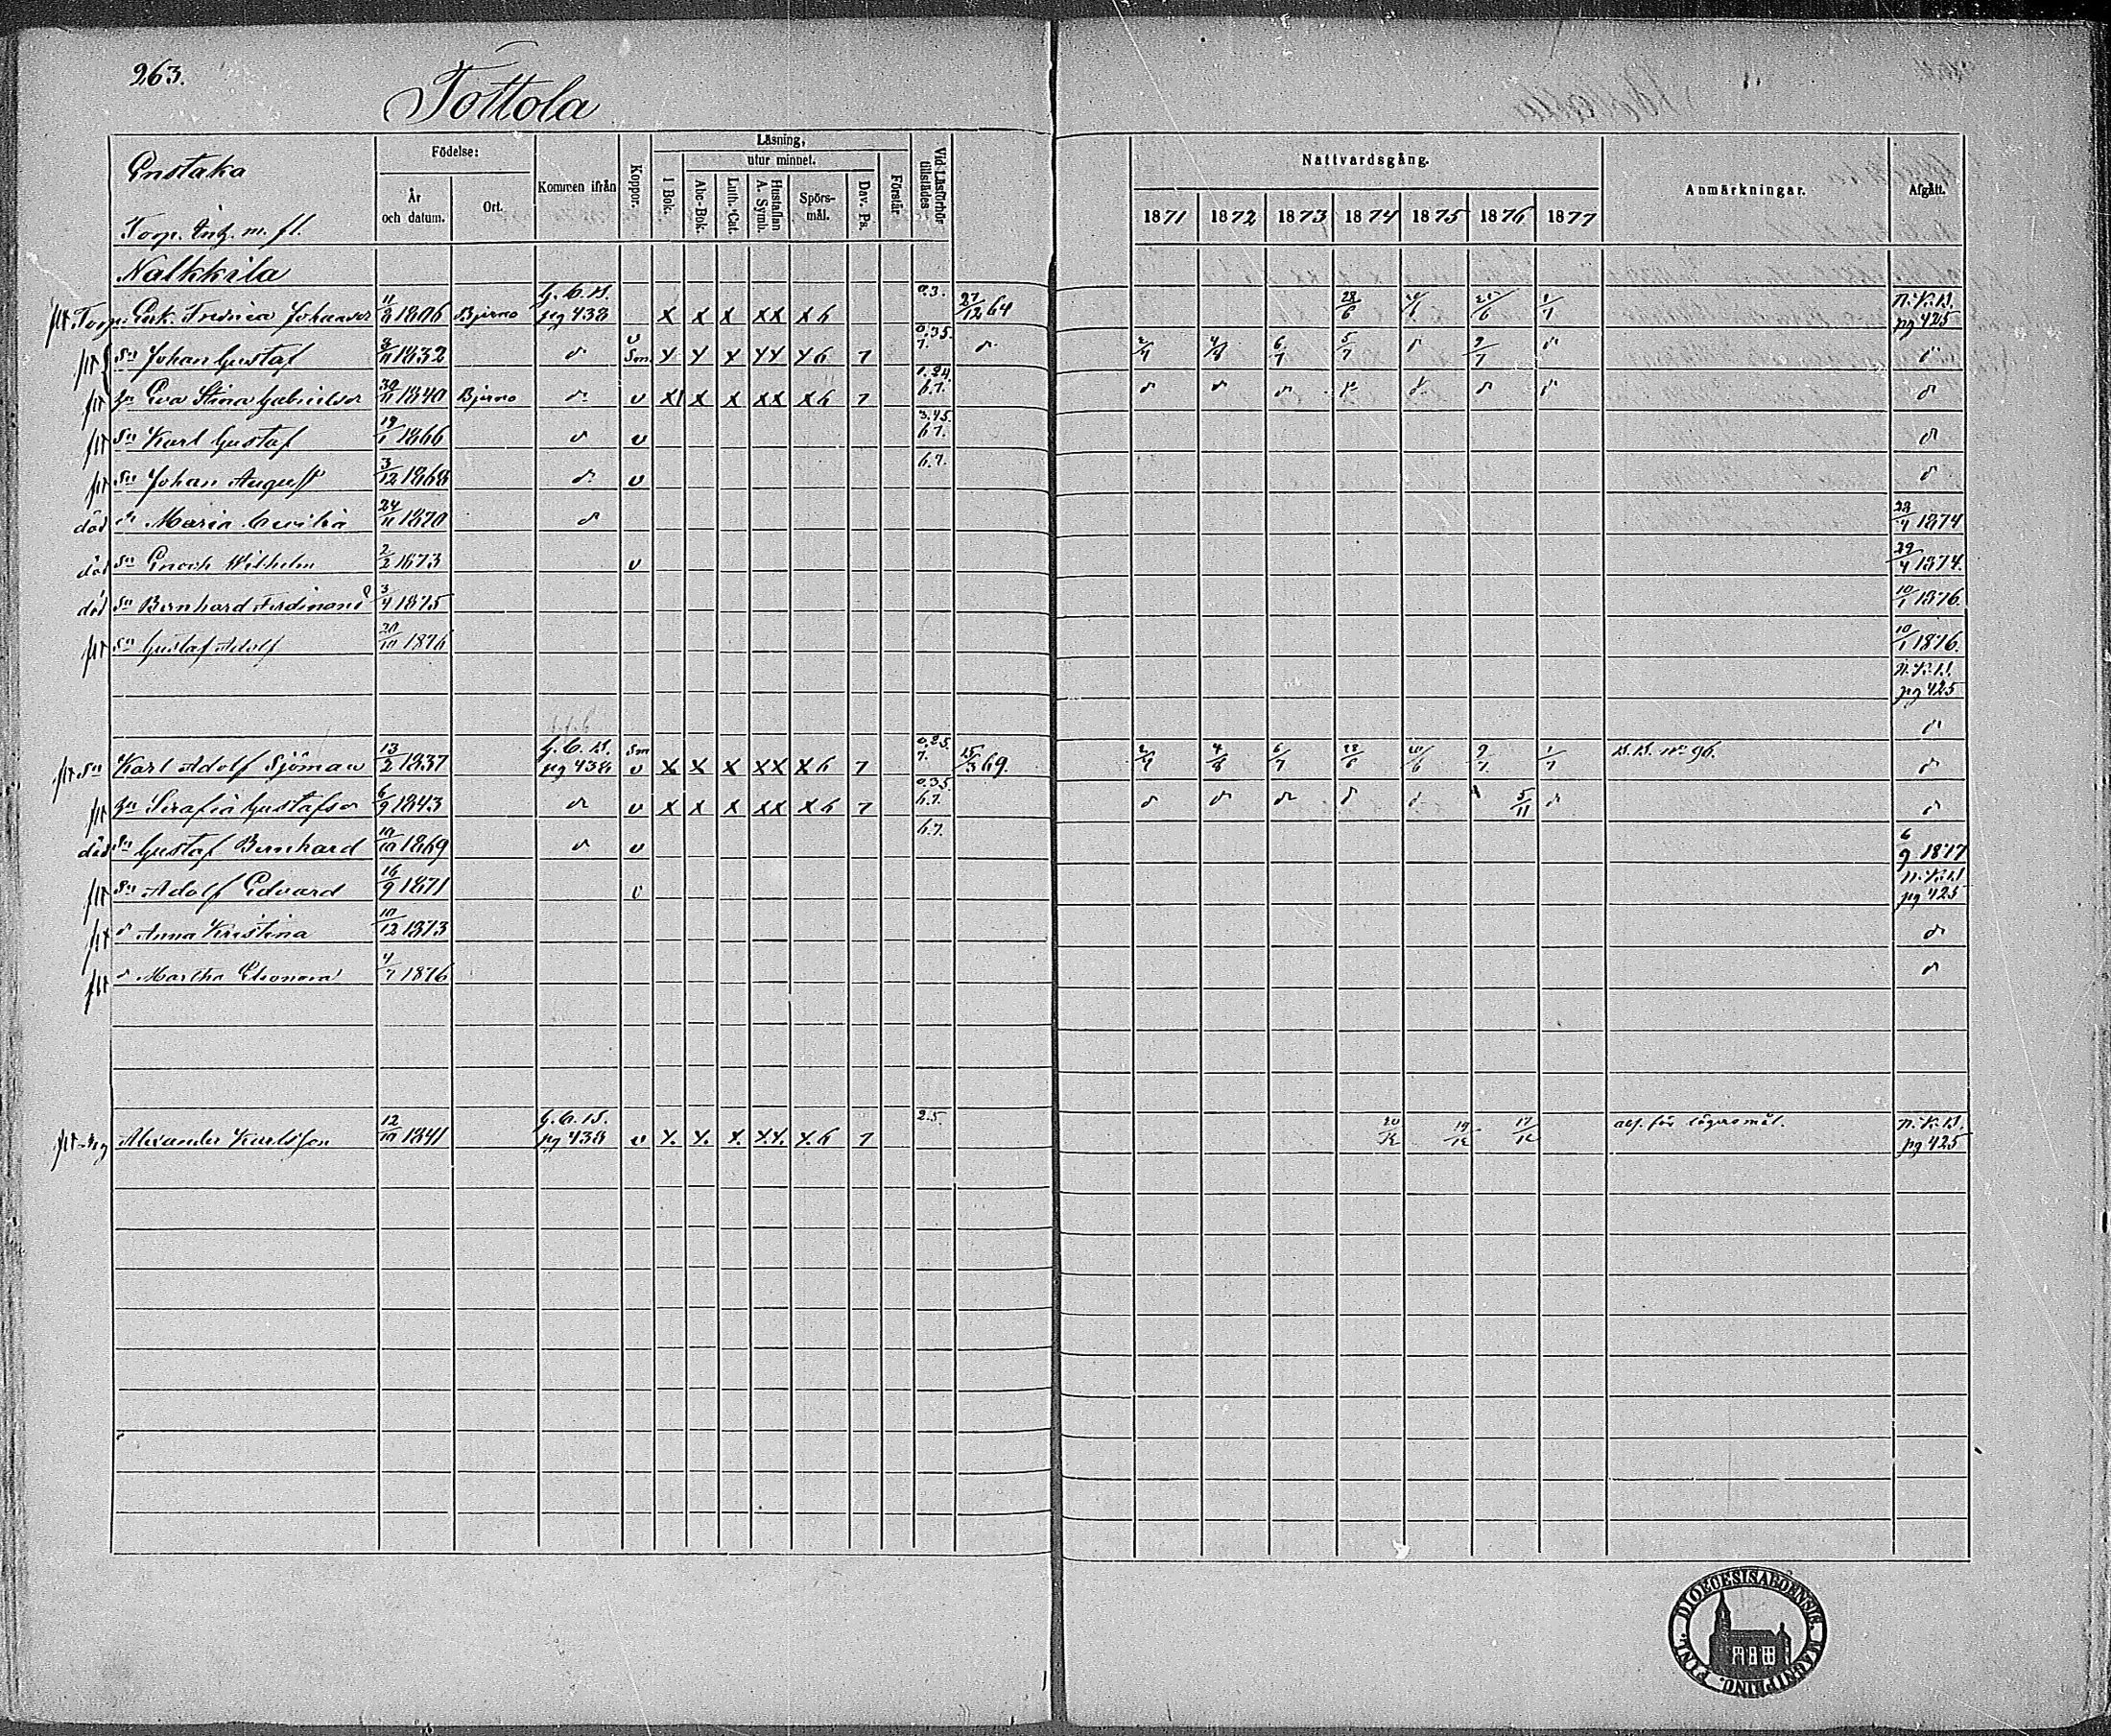 263.
Tottola
Enstaka
Torp. Inh. m. fl.
Födelse:
År och datum.
Ort.
Kommen ifrån
Koppor.
Läsning,
utur minnet.
I Bok.
Abc-Bok.
Luth. Cat.
Hustaflan A. Symb.
Spörsmål.
Dav. Ps.
Förstår.
Vid Läsförhör tillstädes
Nattvardsgång.
1871 1872 1873 1874 1875 1876 1877
Anmärkningar.
Afgått.
Nalkkila
flt Torp. Enk. Fredrica Johansdr 11/8 1806 Bjerno G. C. B. pg 438 x x x xx x 6 0.3. 27/12 64 28/6 21/6 1/1 N. K. B. pg 425
flt sn Johan Gustaf 3/11 1832 d:o v Sm x x x xx x 6 7 0.35. 7. d:o 2/7 4/8 6/7 5/7 d:o 9/7 d:o d:o
flt hu Eva Stina Gabrielsdr 30/11 1840 Bjerno d:o v x x x xx x 6 7 6.7. d:o d:o d:o d:o d:o d:o d:o d:o
flt sn Karl Gustaf 19/1 1866 d:o v 3.45. 6.7. d:o
flt sn Johan August 3/12 1868 d:o v 6.7. d:o
död d Maria Cecilia 24/11 1870 d:o 23/4 1874
död sn Enoch Wilhelm 2/2 1873 v 29/4 1874.
död sn Bernhard Ferdinand 3/4 1875 10/1 1876.
flt sn Gustaf Adolf 1876 10/1 1876.
N. K. B. pg 425
d:o
flt sn Karl Adolf Sjöman 13/2 1837 G. C. B. pg 438 Sm v x x x xx x 6 7 0.25. 7. 15/3 69. 2/7 4/8 6/7 28/6 20/6 9/7 1/7 B. B. No 96. d:o
flt hu Serafia Gustafsdr 6/9 1843 d:o v x x x xx x 6 7 0.35. 6.7. d:o d:o d:o d:o d:o 5/11 d:o d:o
död sn Gustaf Bernhard 10/10 1869 d:o v 6.7. 6/9 1877
flt sn Adolf Edvard 16/9 1871 v N. K. B. pg 425
flt d Anna Kristina 10/12 1873 d:o
flt d Martha Eleonora 4/7 1876 d:o
flt Alexander Karlsson 12/10 1841 G. C. B. pg 438 v x. x. x. x.x. x. 6 7 2.5. 20/12 17/12 abs. för lägersmål. N. K. B. pg 425
FINL. DIOECESIS ABOENSIS MAGNI PRINC.